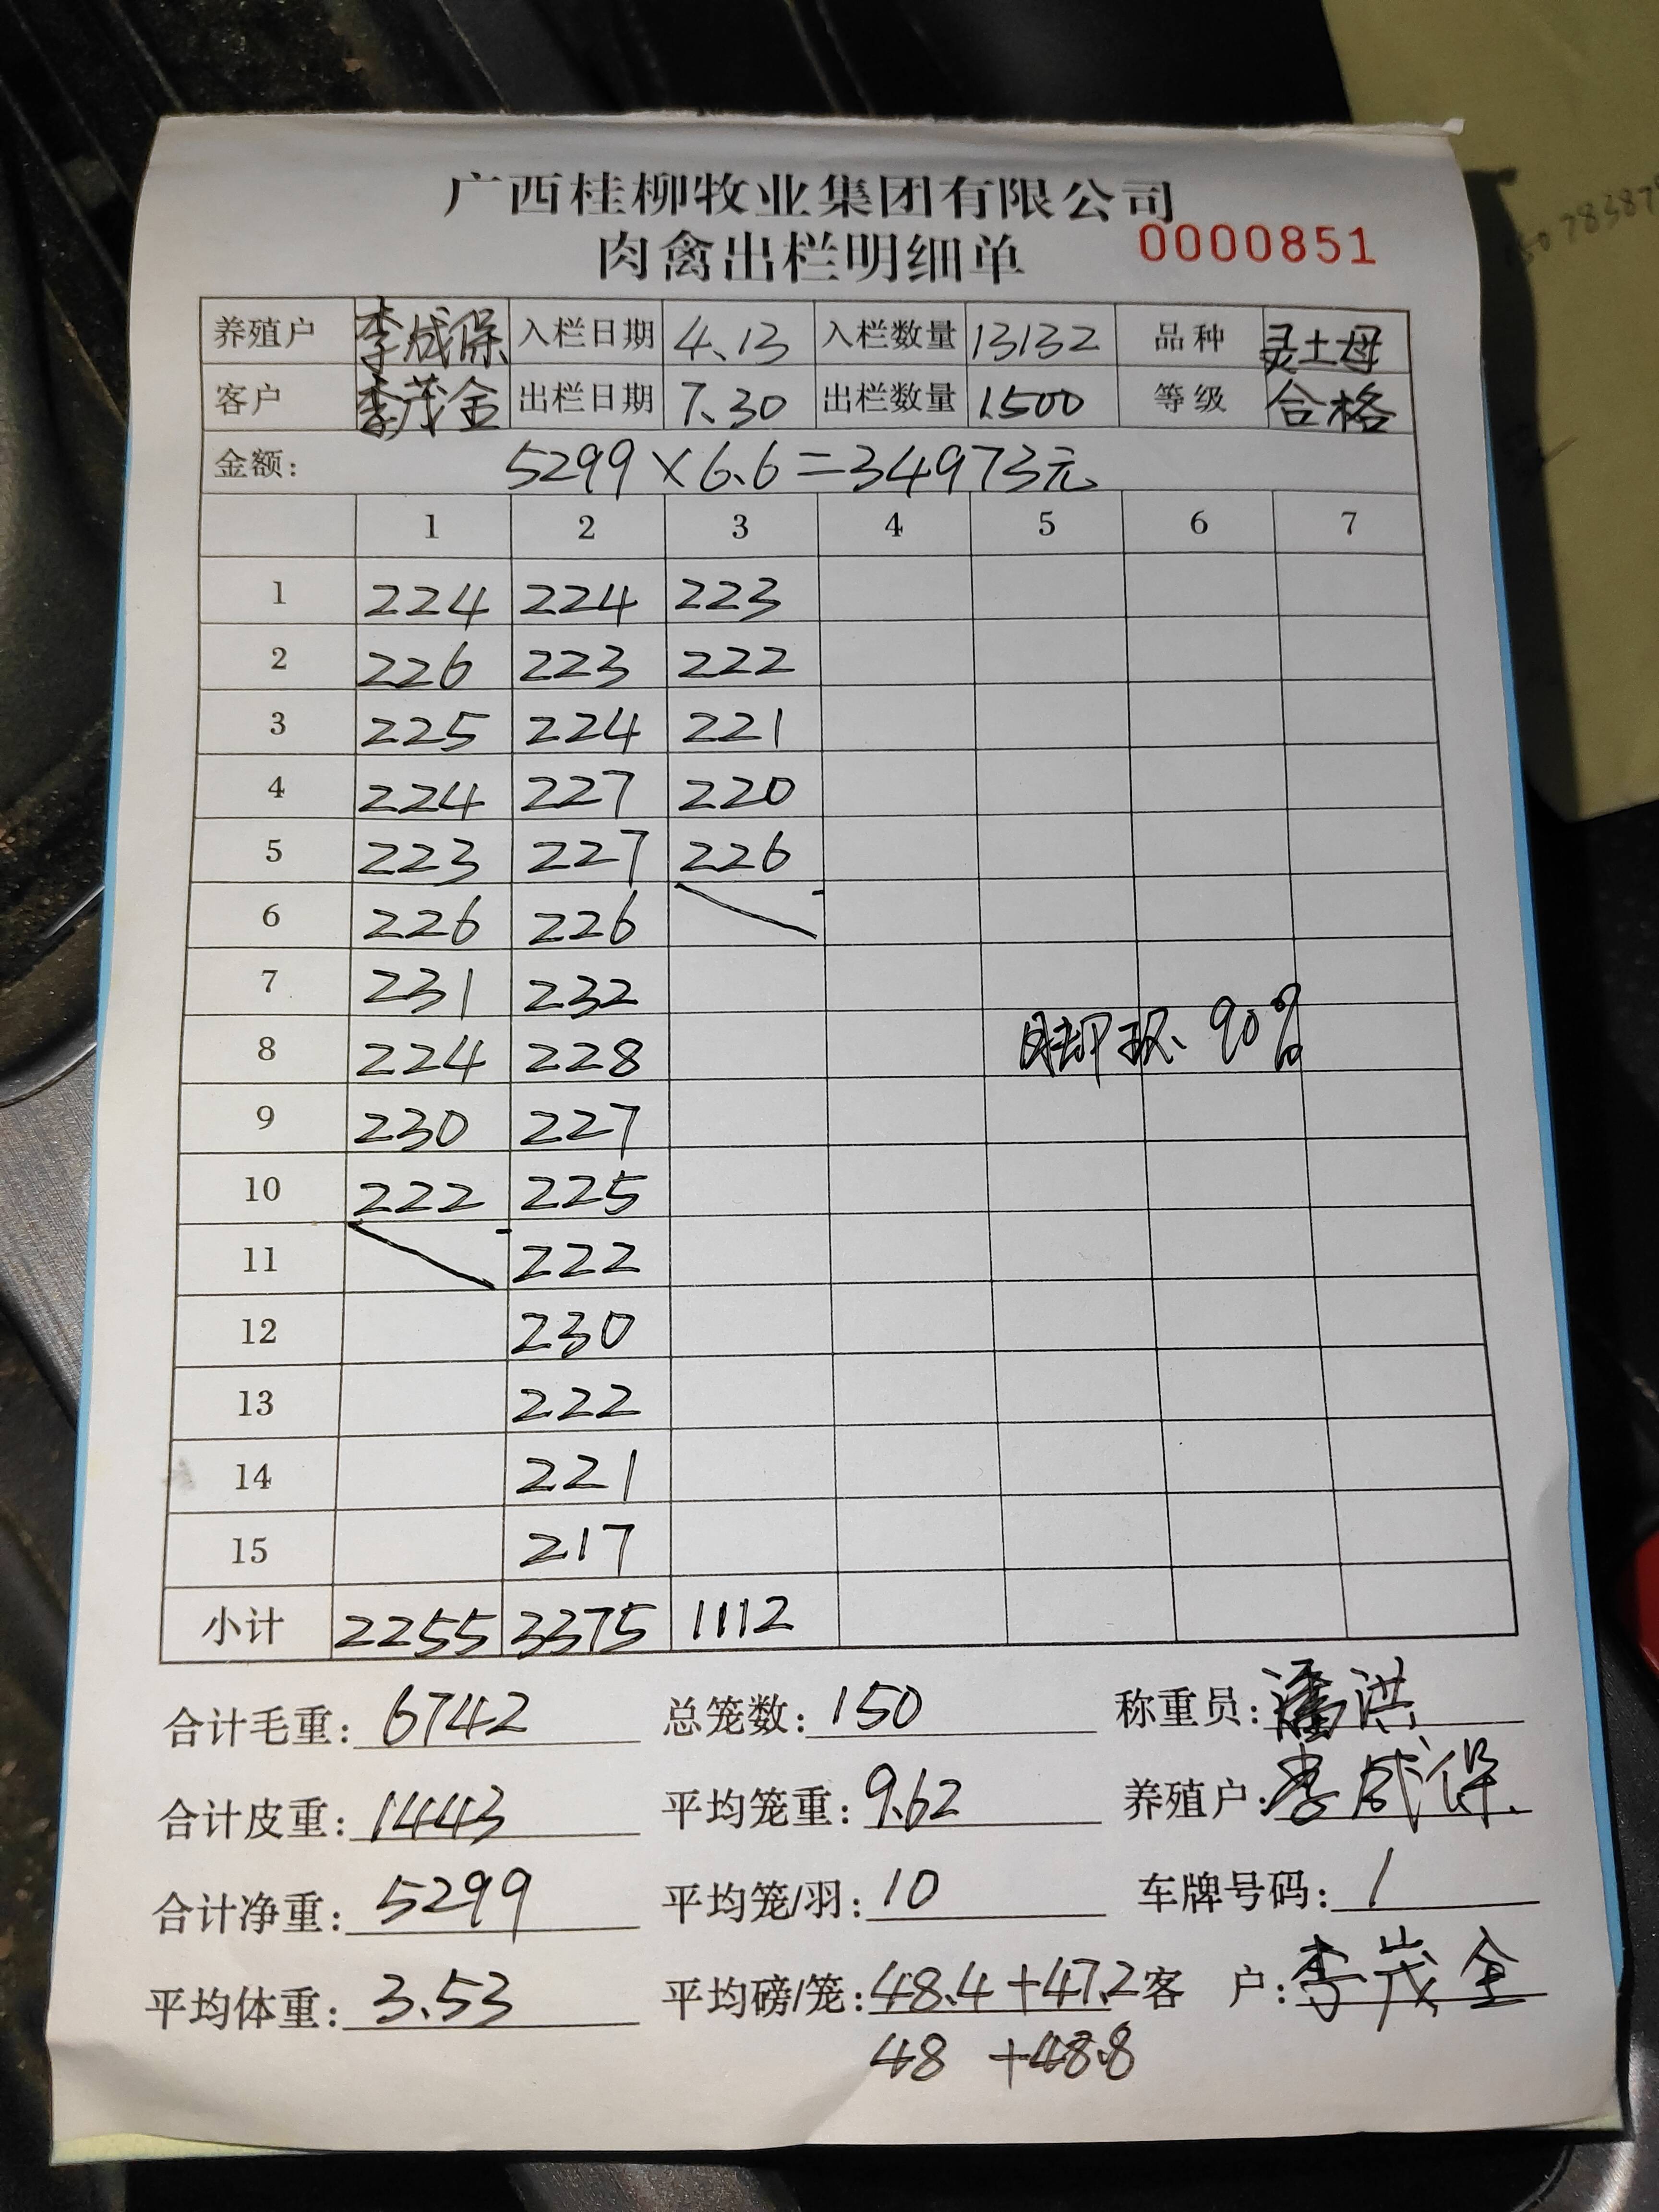 广西桂柳牧业集团有限公司
肉禽出栏明细单 0000851
养殖户 李成保 入栏日期 4.13 入栏数量 13132 品种 灵土母
客户 李茂金 出栏日期 7.30 出栏数量 1500 等级 合格
金额: 5299×6.6=34973元
1 2 3 4 5 6 7
1 224 224 223
2 226 223 222
3 225 224 221
4 224 227 220
5 223 227 226
6 226 226
7 231 232
8 224 228 脚环、90%
9 230 227
10 222 225
11 222
12 230
13 222
14 221
15 217
小计 2255 3375 1112
合计毛重: 6742 总笼数: 150 称重员: 潘洪
合计皮重: 1443 平均笼重: 9.62 养殖户: 李成保
合计净重: 5299 平均笼/羽: 10 车牌号码: 1
平均体重: 3.53 平均磅/笼: 48.4+47.2 客户: 李茂金
48 +48.8